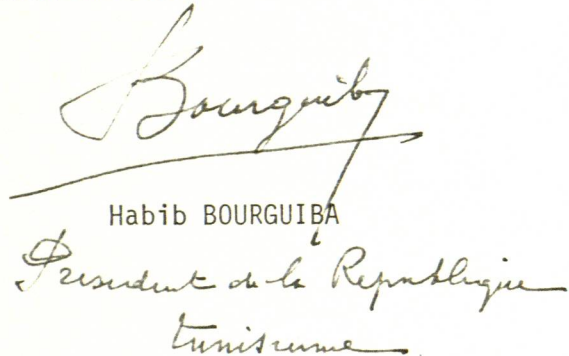 Bourguiba
Habib BOURGUIBA
President de la Republique
tunisienne